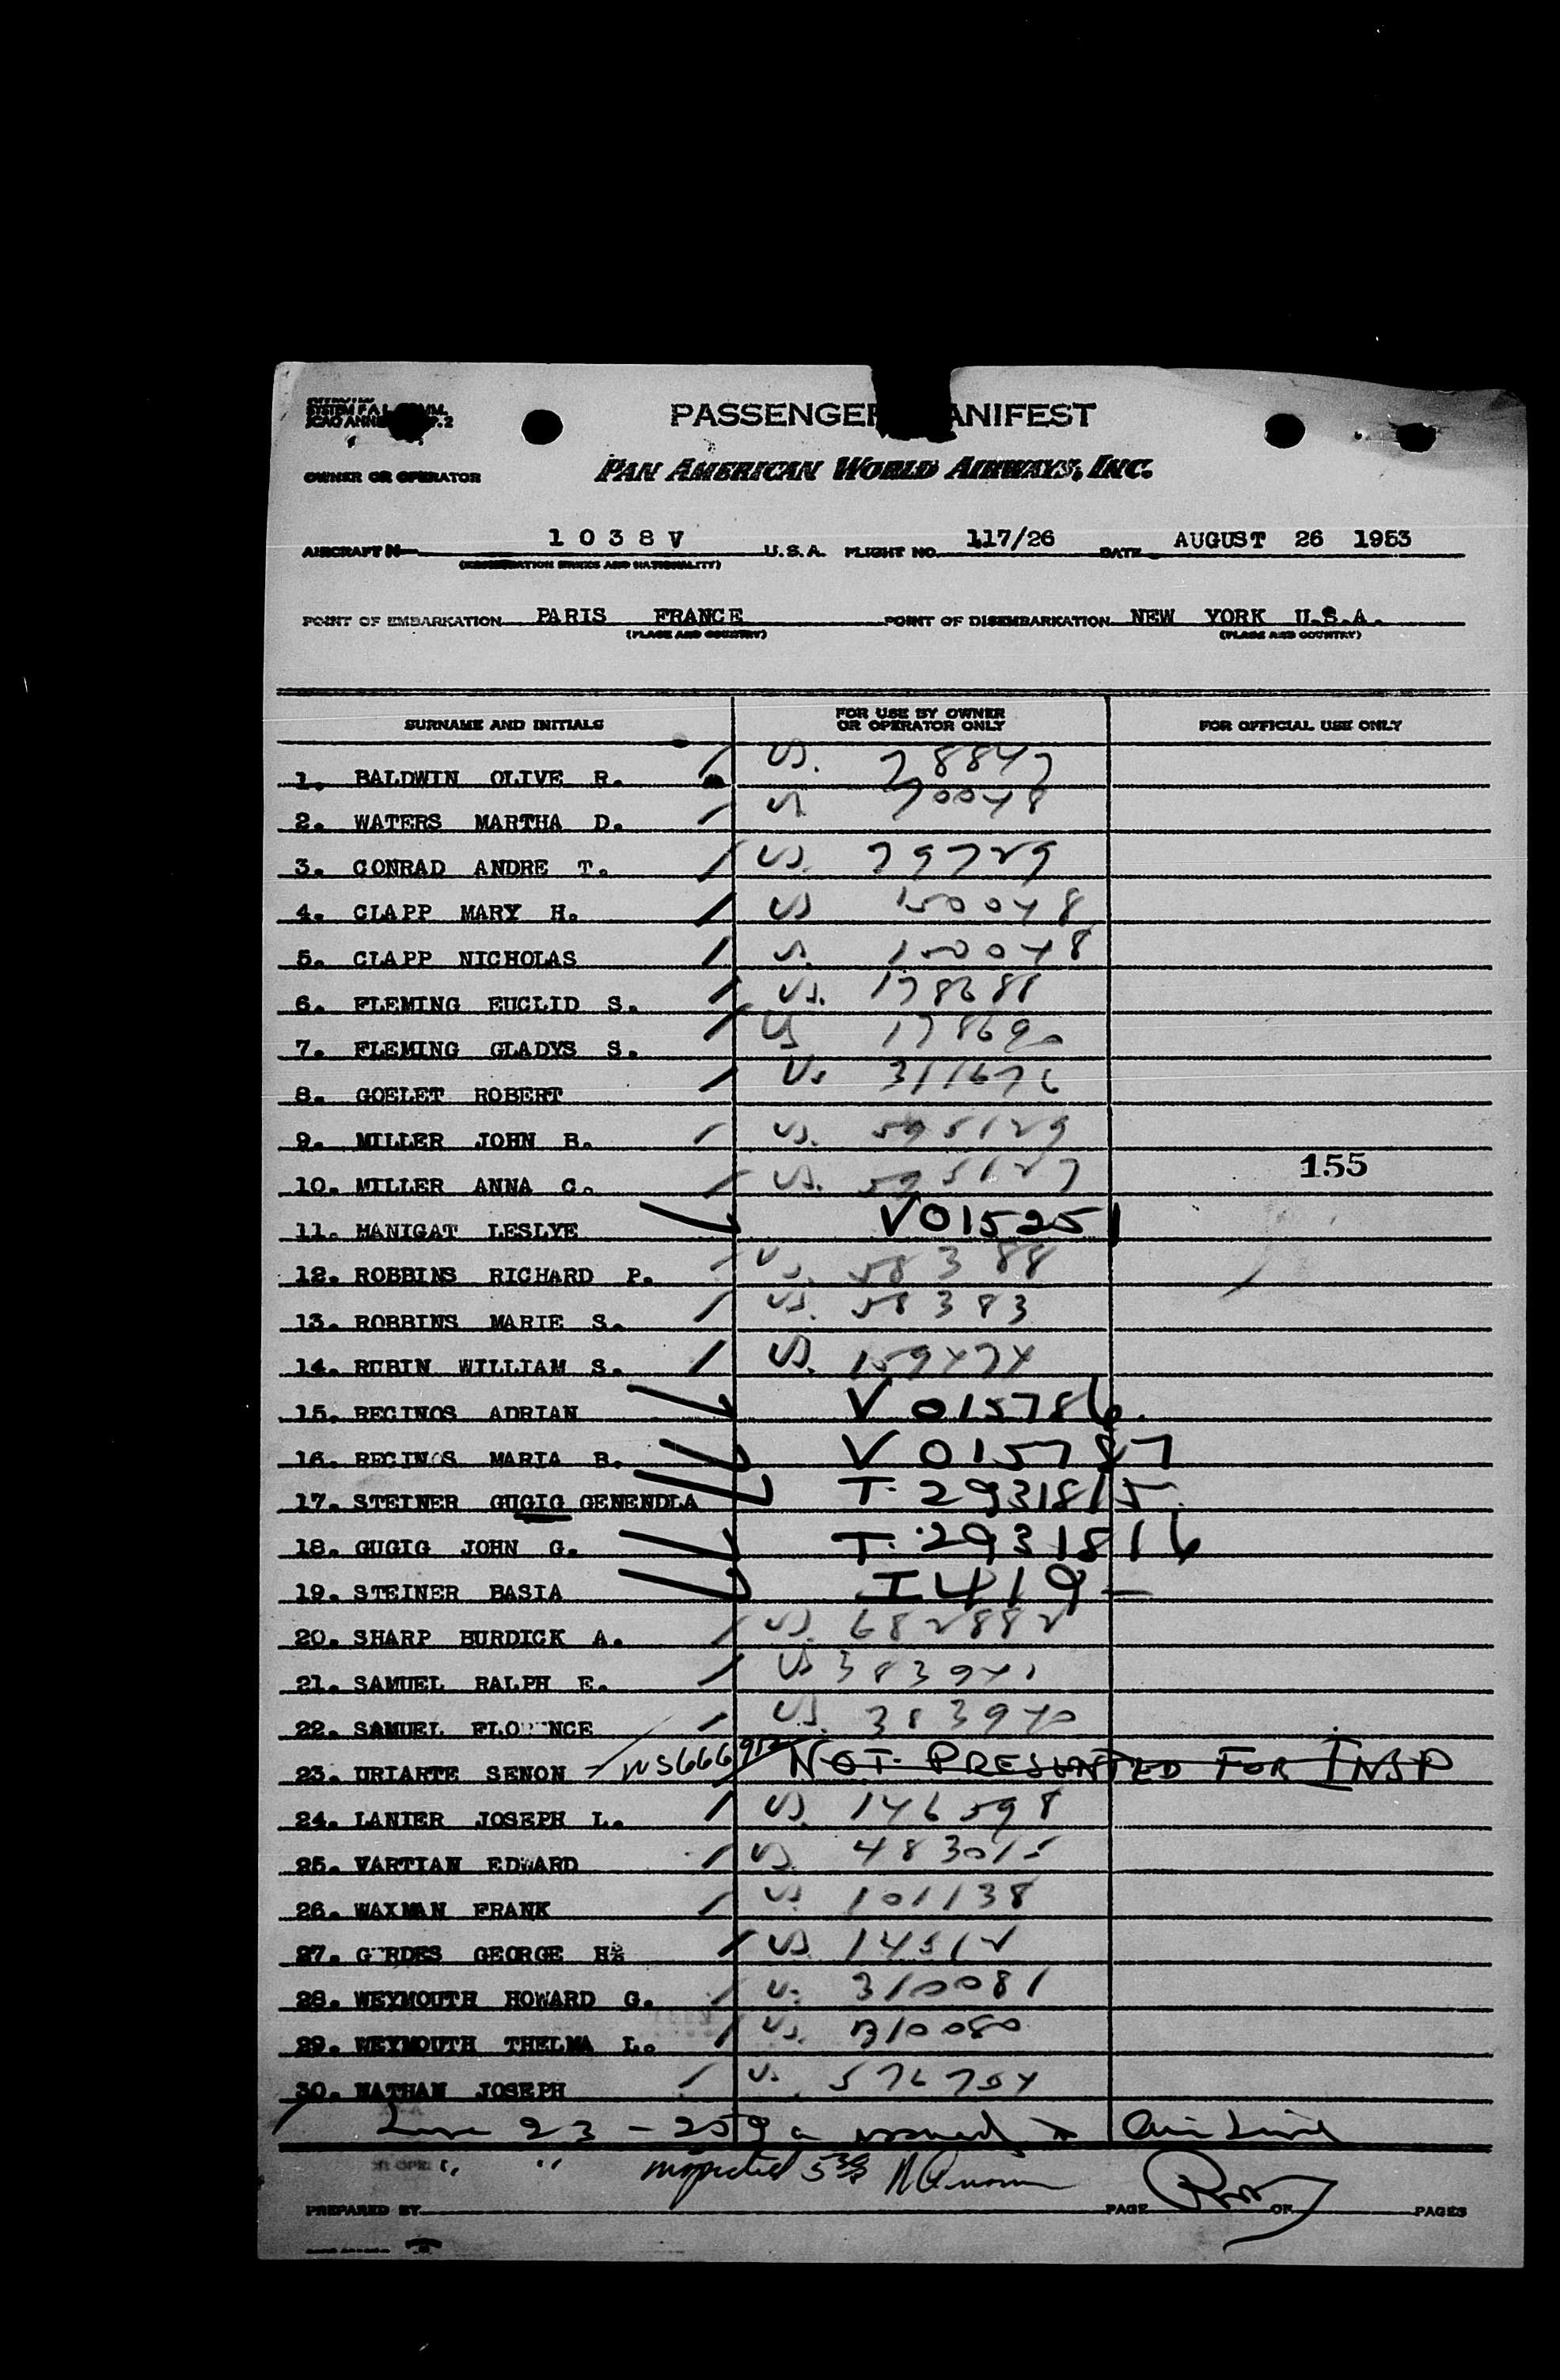 SYSTEM F.A.L. COMM.
ICAO ANNEX P.2
PASSENGER MANIFEST
OWNER OR OPERATOR PAN AMERICAN WORLD AIRWAYS, INC.
AIRCRAFT N 1038V U.S.A. FLIGHT NO. 117/26 DATE AUGUST 26 1953
(REGISTRATION MARKS AND NATIONALITY)
POINT OF EMBARKATION PARIS FRANCE POINT OF DISEMBARKATION NEW YORK U.S.A.
(PLACE AND COUNTRY) (PLACE AND COUNTRY)
SURNAME AND INITIALS FOR USE BY OWNER OR OPERATOR ONLY FOR OFFICIAL USE ONLY
1. BALDWIN OLIVE R. US. 78847
2. WATERS MARTHA D. US 70048
3. CONRAD ANDRE T. US. 79729
4. CLAPP MARY H. US 150048
5. CLAPP NICHOLAS US. 150048
6. FLEMING EUCLID S. US. 178688
7. FLEMING GLADYS S. US 178690
8. GOELET ROBERT US 311676
9. MILLER JOHN B. US. 595129
10. MILLER ANNA C. US. 595127 155
11. MANIGAT LESLYE V015251
12. ROBBINS RICHARD P. US. 58388
13. ROBBINS MARIE S. US. 58383
14. RUBIN WILLIAM S. US. 159474
15. RECINOS ADRIAN V 015786
16. RECINOS MARIA B. V 015787
17. STEINER GUGIG GENENDLA T. 2931815
18. GUGIG JOHN G. T. 2931816
19. STEINER BASIA I419-
20. SHARP BURDICK A. US. 682882
21. SAMUEL RALPH E. US 383941
22. SAMUEL FLORENCE US. 383940
23. URIARTE SENON NOT PRESENTED FOR INSP
24. LANIER JOSEPH L. US. 146598
25. VARTIAN EDWARD US. 483015
26. WAXMAN FRANK US 101138
27. GERDES GEORGE H. US 14512
28. WEYMOUTH HOWARD G. US 310081
29. WEYMOUTH THELMA L. US. 310080
30. NATHAN JOSEPH US. 576754
Line 23 - 259 a issued to Air Line
" " inspected
PREPARED BY PAGE OF PAGES